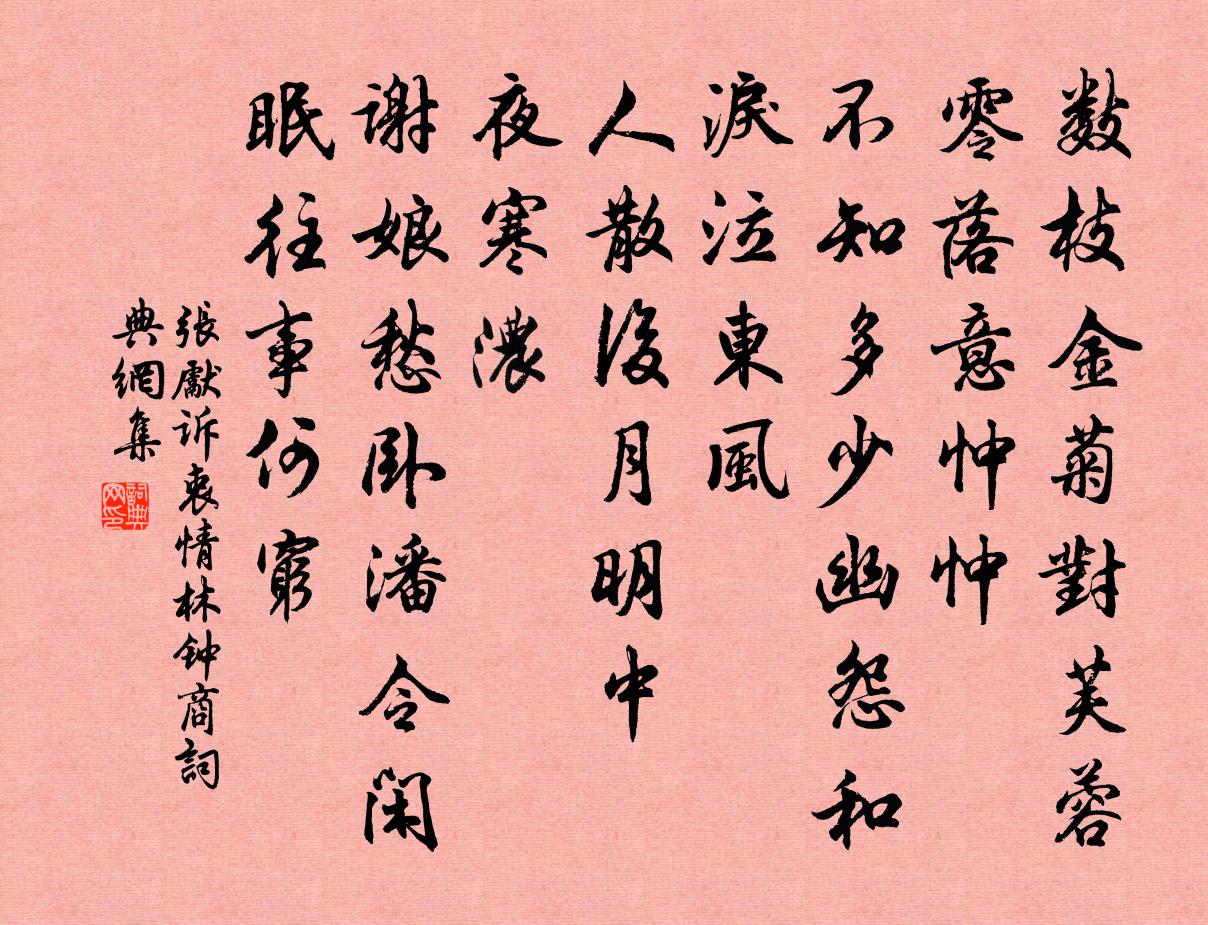 數枝金菊對芙蓉
零落意忡忡
不知多少幽怨和
淚泣東風
人散後月明中
夜寒濃
謝娘愁臥潘令閑
眠往事何窮
張獻訴衷情林钟商詞
典網集
詞典
网印